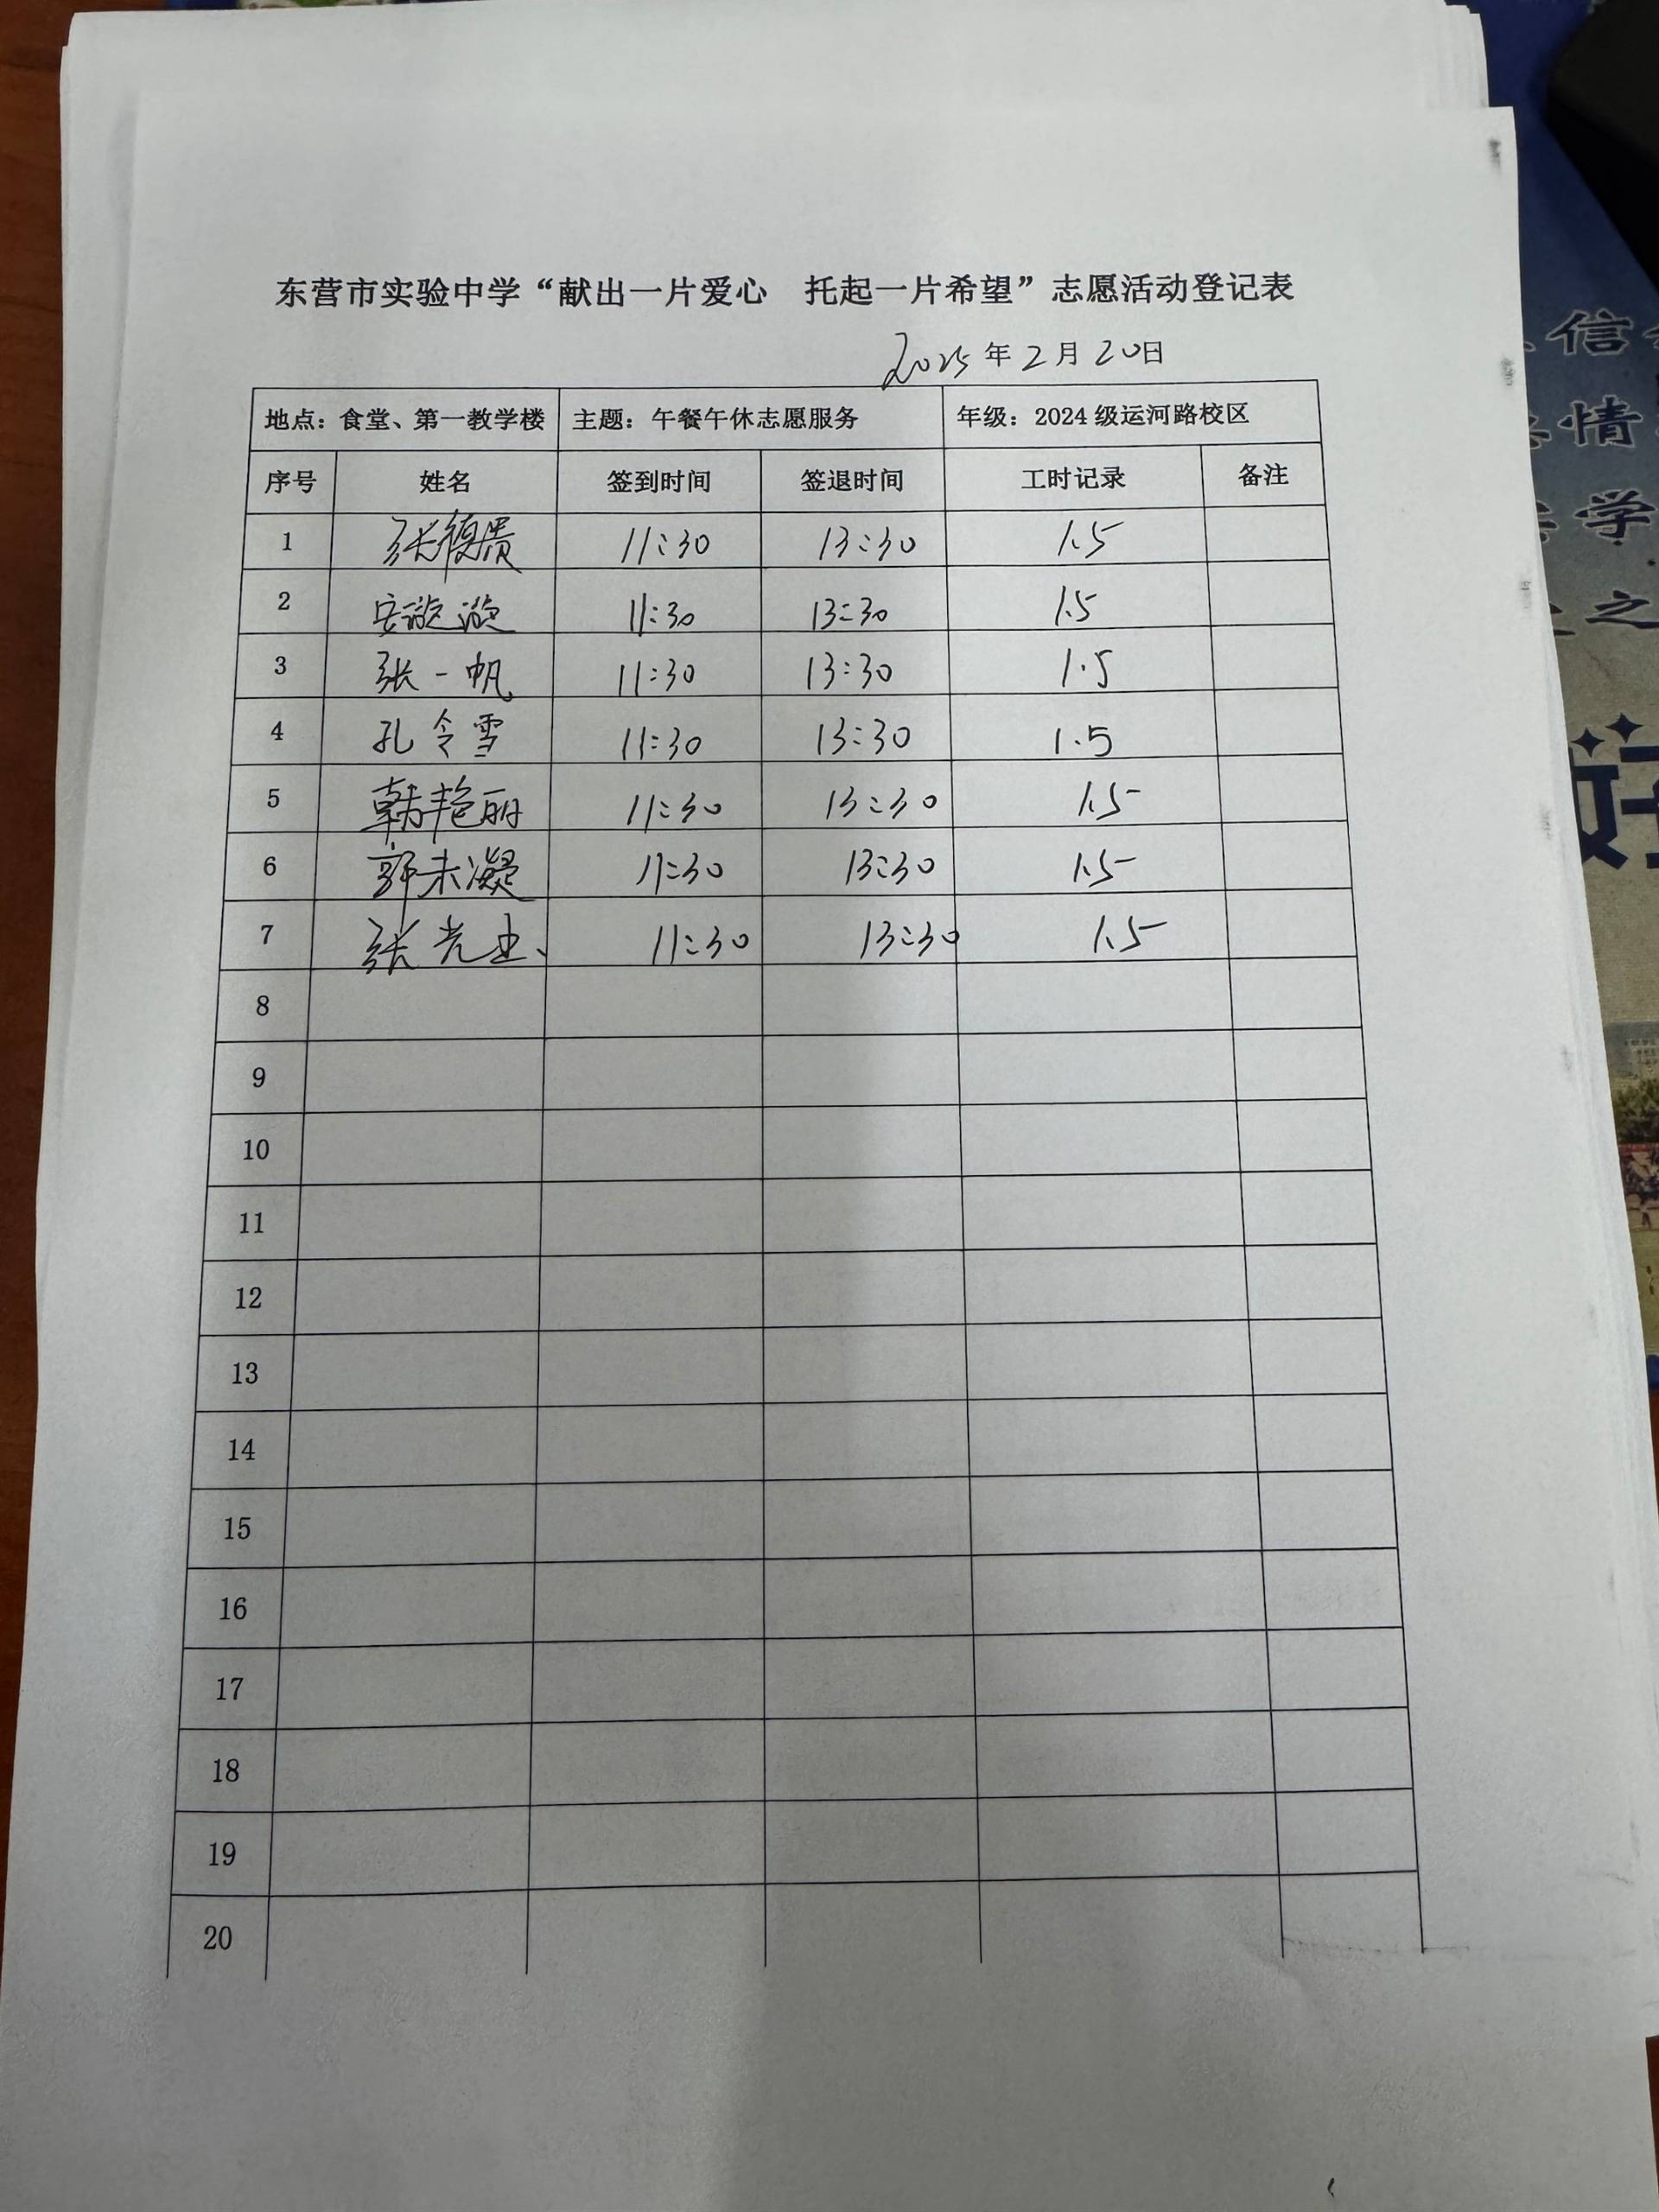 东营市实验中学“献出一片爱心 托起一片希望”志愿活动登记表
2025年2月20日
地点：食堂、第一教学楼 主题：午餐午休志愿服务 年级：2024级运河路校区
序号 姓名 签到时间 签退时间 工时记录 备注
1 张德贵 11:30 13:30 1.5
2 安漩漩 11:30 13:30 1.5
3 张一帆 11:30 13:30 1.5
4 孔令雪 11:30 13:30 1.5
5 韩艳丽 11:30 13:30 1.5
6 郭未凝 11:30 13:30 1.5
7 张光 11:30 13:30 1.5
8
9
10
11
12
13
14
15
16
17
18
19
20
信
情
学
之
好